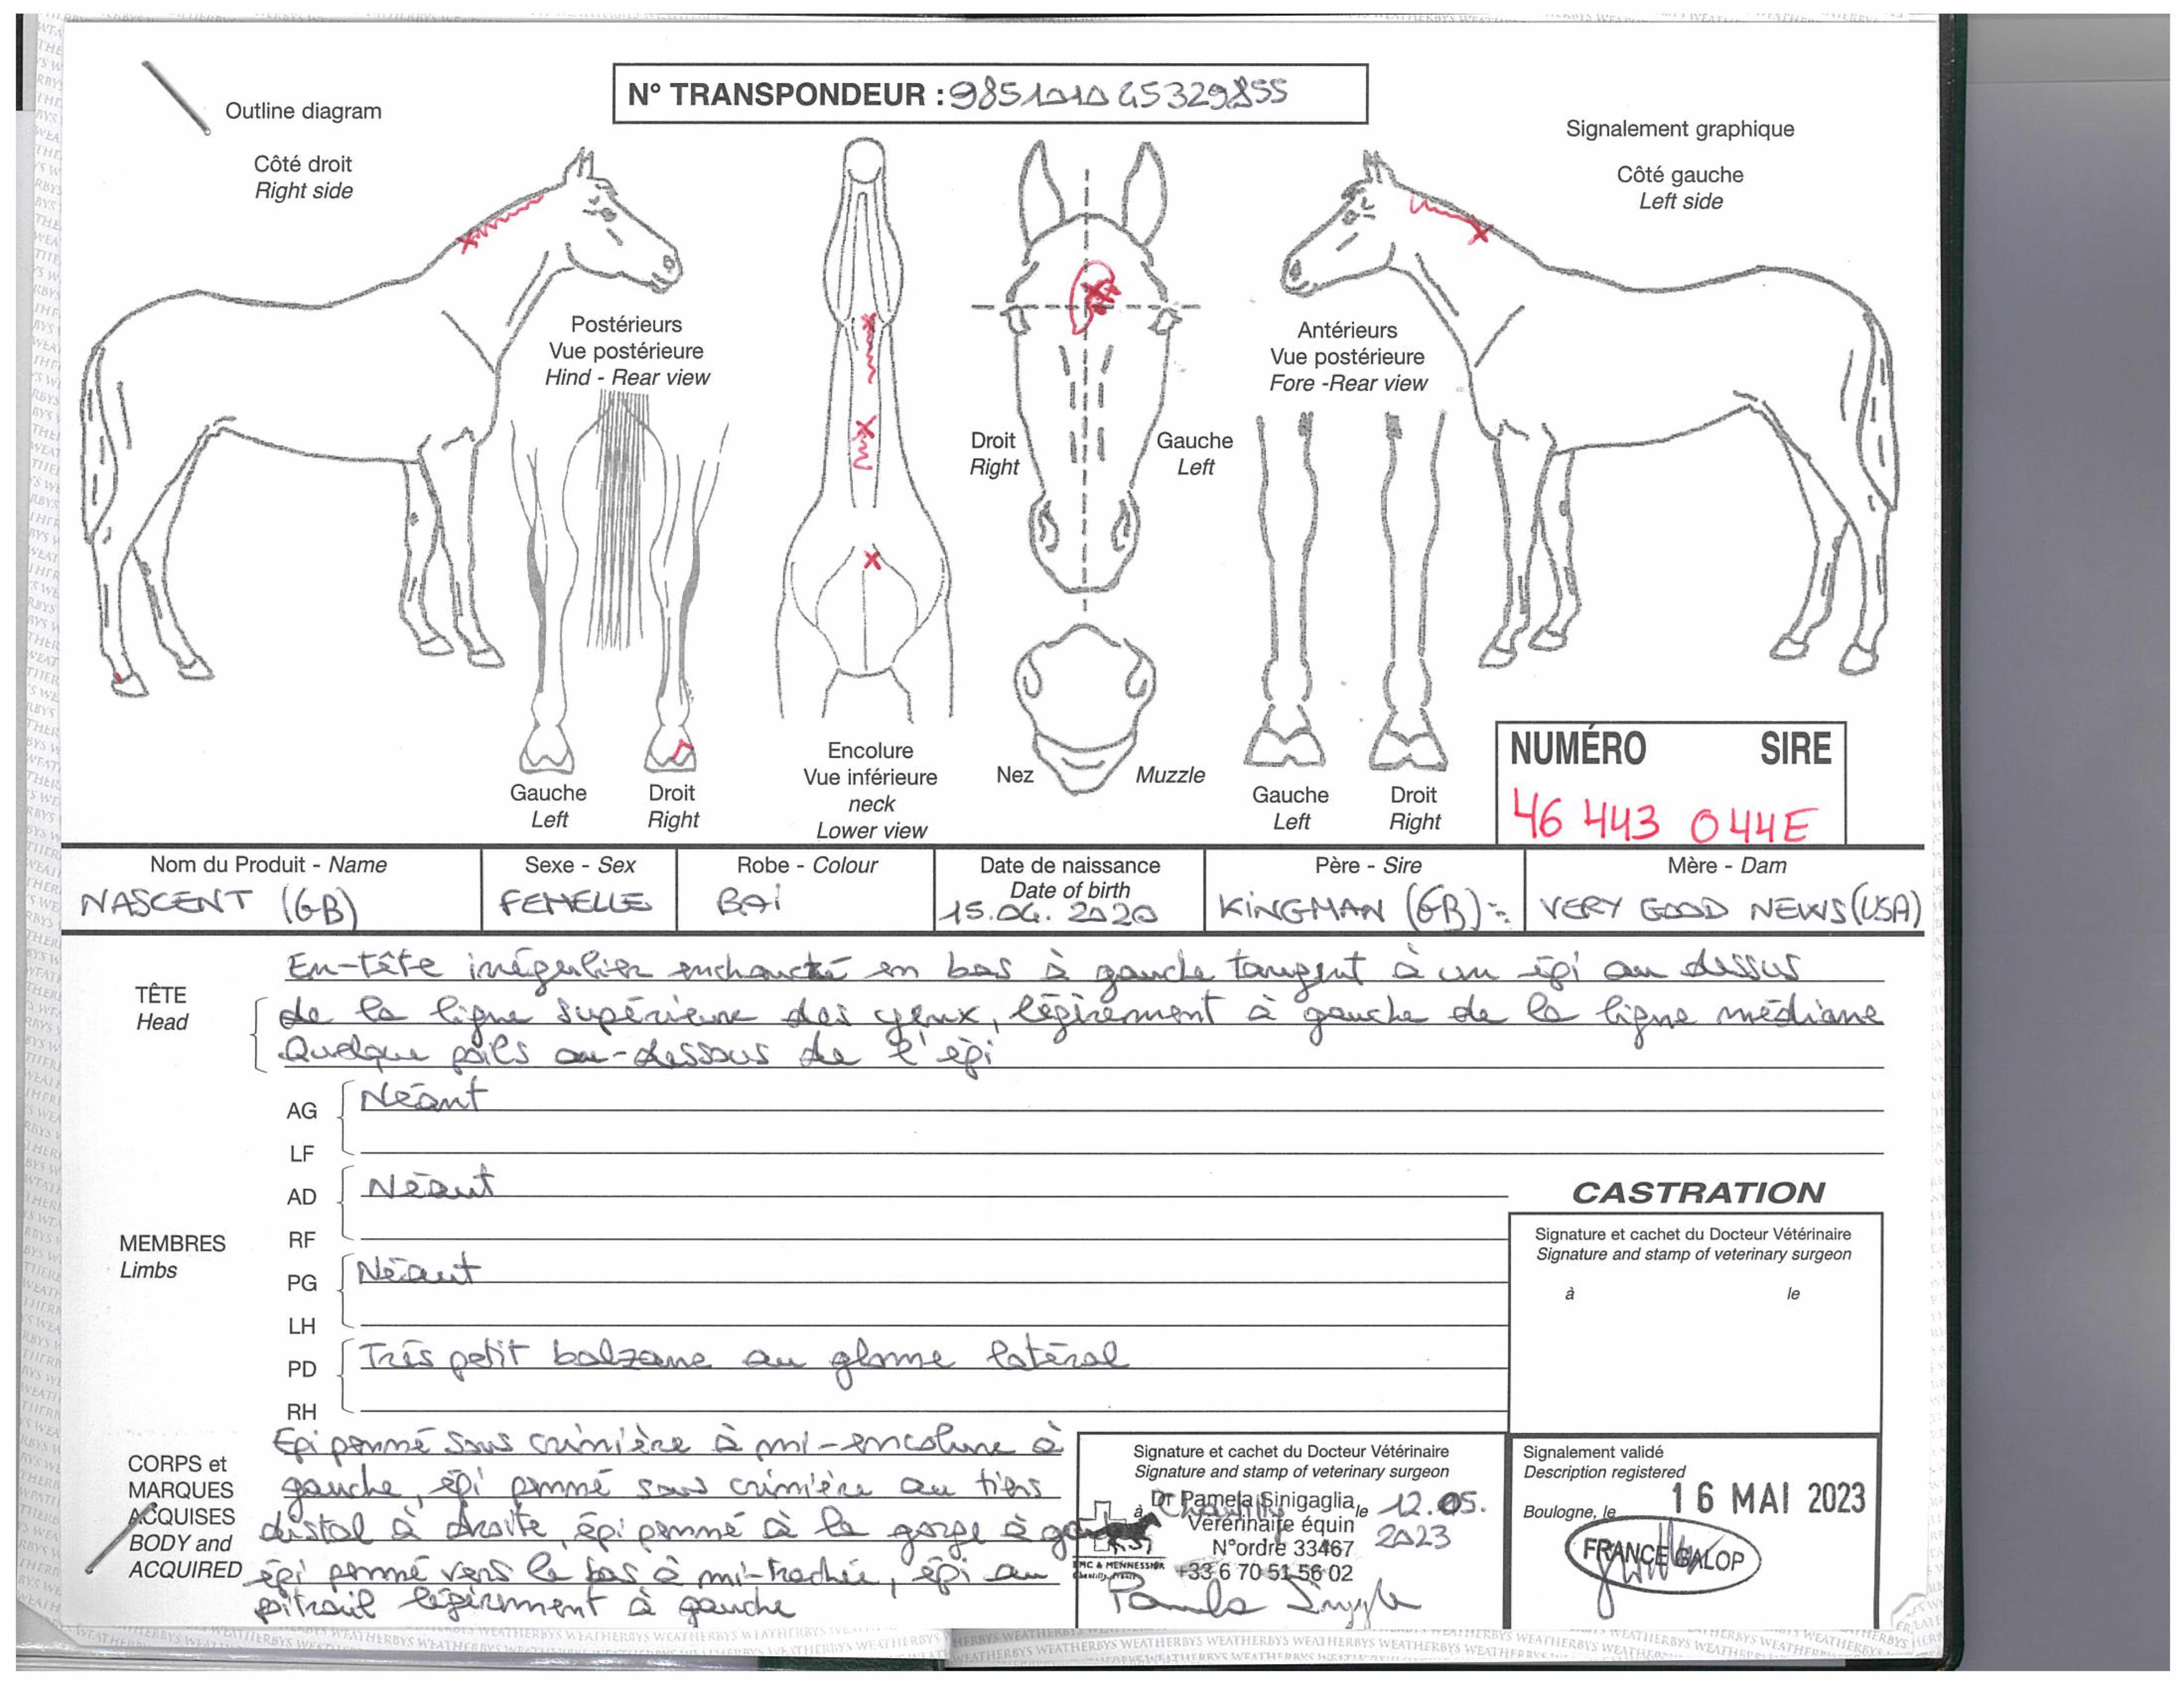 N° TRANSPONDEUR : 985101045329855
Outline diagram
Côté droit
Right side
Signalement graphique
Côté gauche
Left side
Postérieurs
Vue postérieure
Hind - Rear view
Antérieurs
Vue postérieure
Fore -Rear view
Droit
Right
Gauche
Left
Gauche
Left
Droit
Right
Encolure
Vue inférieure
neck
Lower view
Nez
Muzzle
Gauche
Left
Droit
Right
NUMÉRO SIRE
46 443 044E
Nom du Produit - Name
Sexe - Sex
Robe - Colour
Date de naissance
Date of birth
Père - Sire
Mère - Dam
NASCENT (GB)
FEMELLE
BAi
15.04. 2020
KiNGMAN (GB)
VERY GOOD NEWS (USA)
TÊTE
Head
En-tête irrégulier en bas à gauche tangent à un épi au dessus
de la ligne supérieure des yeux, légèrement à gauche de la ligne médiane
Quelque poils au-dessous de l'épi
AG
LF
Néant
AD
RF
Néant
MEMBRES
Limbs
PG
LH
Néant
PD
RH
Très petit balzane au glome latéral
CASTRATION
Signature et cachet du Docteur Vétérinaire
Signature and stamp of veterinary surgeon
à le
CORPS et
MARQUES
ACQUISES
BODY and
ACQUIRED
Epi penné sous crinière à mi-encolure à
gauche, épi penné sous crinière au tiers
distal à droite, épi penné à la gorge à
épi penné vers le bas à mi-trachée, épi au
poitrail légèrement à gauche
Signature et cachet du Docteur Vétérinaire
Signature and stamp of veterinary surgeon
à Chantilly le 12.05.
2023
Dr Pamela Sinigaglia
Vétérinaire équin
N°ordre 33467
+33 6 70 51 56 02
Signalement validé
Description registered
Boulogne, le 16 MAI 2023
FRANCE GALOP
WEATHERBYS WEATHERBYS WEATHERBYS WEATHERBYS